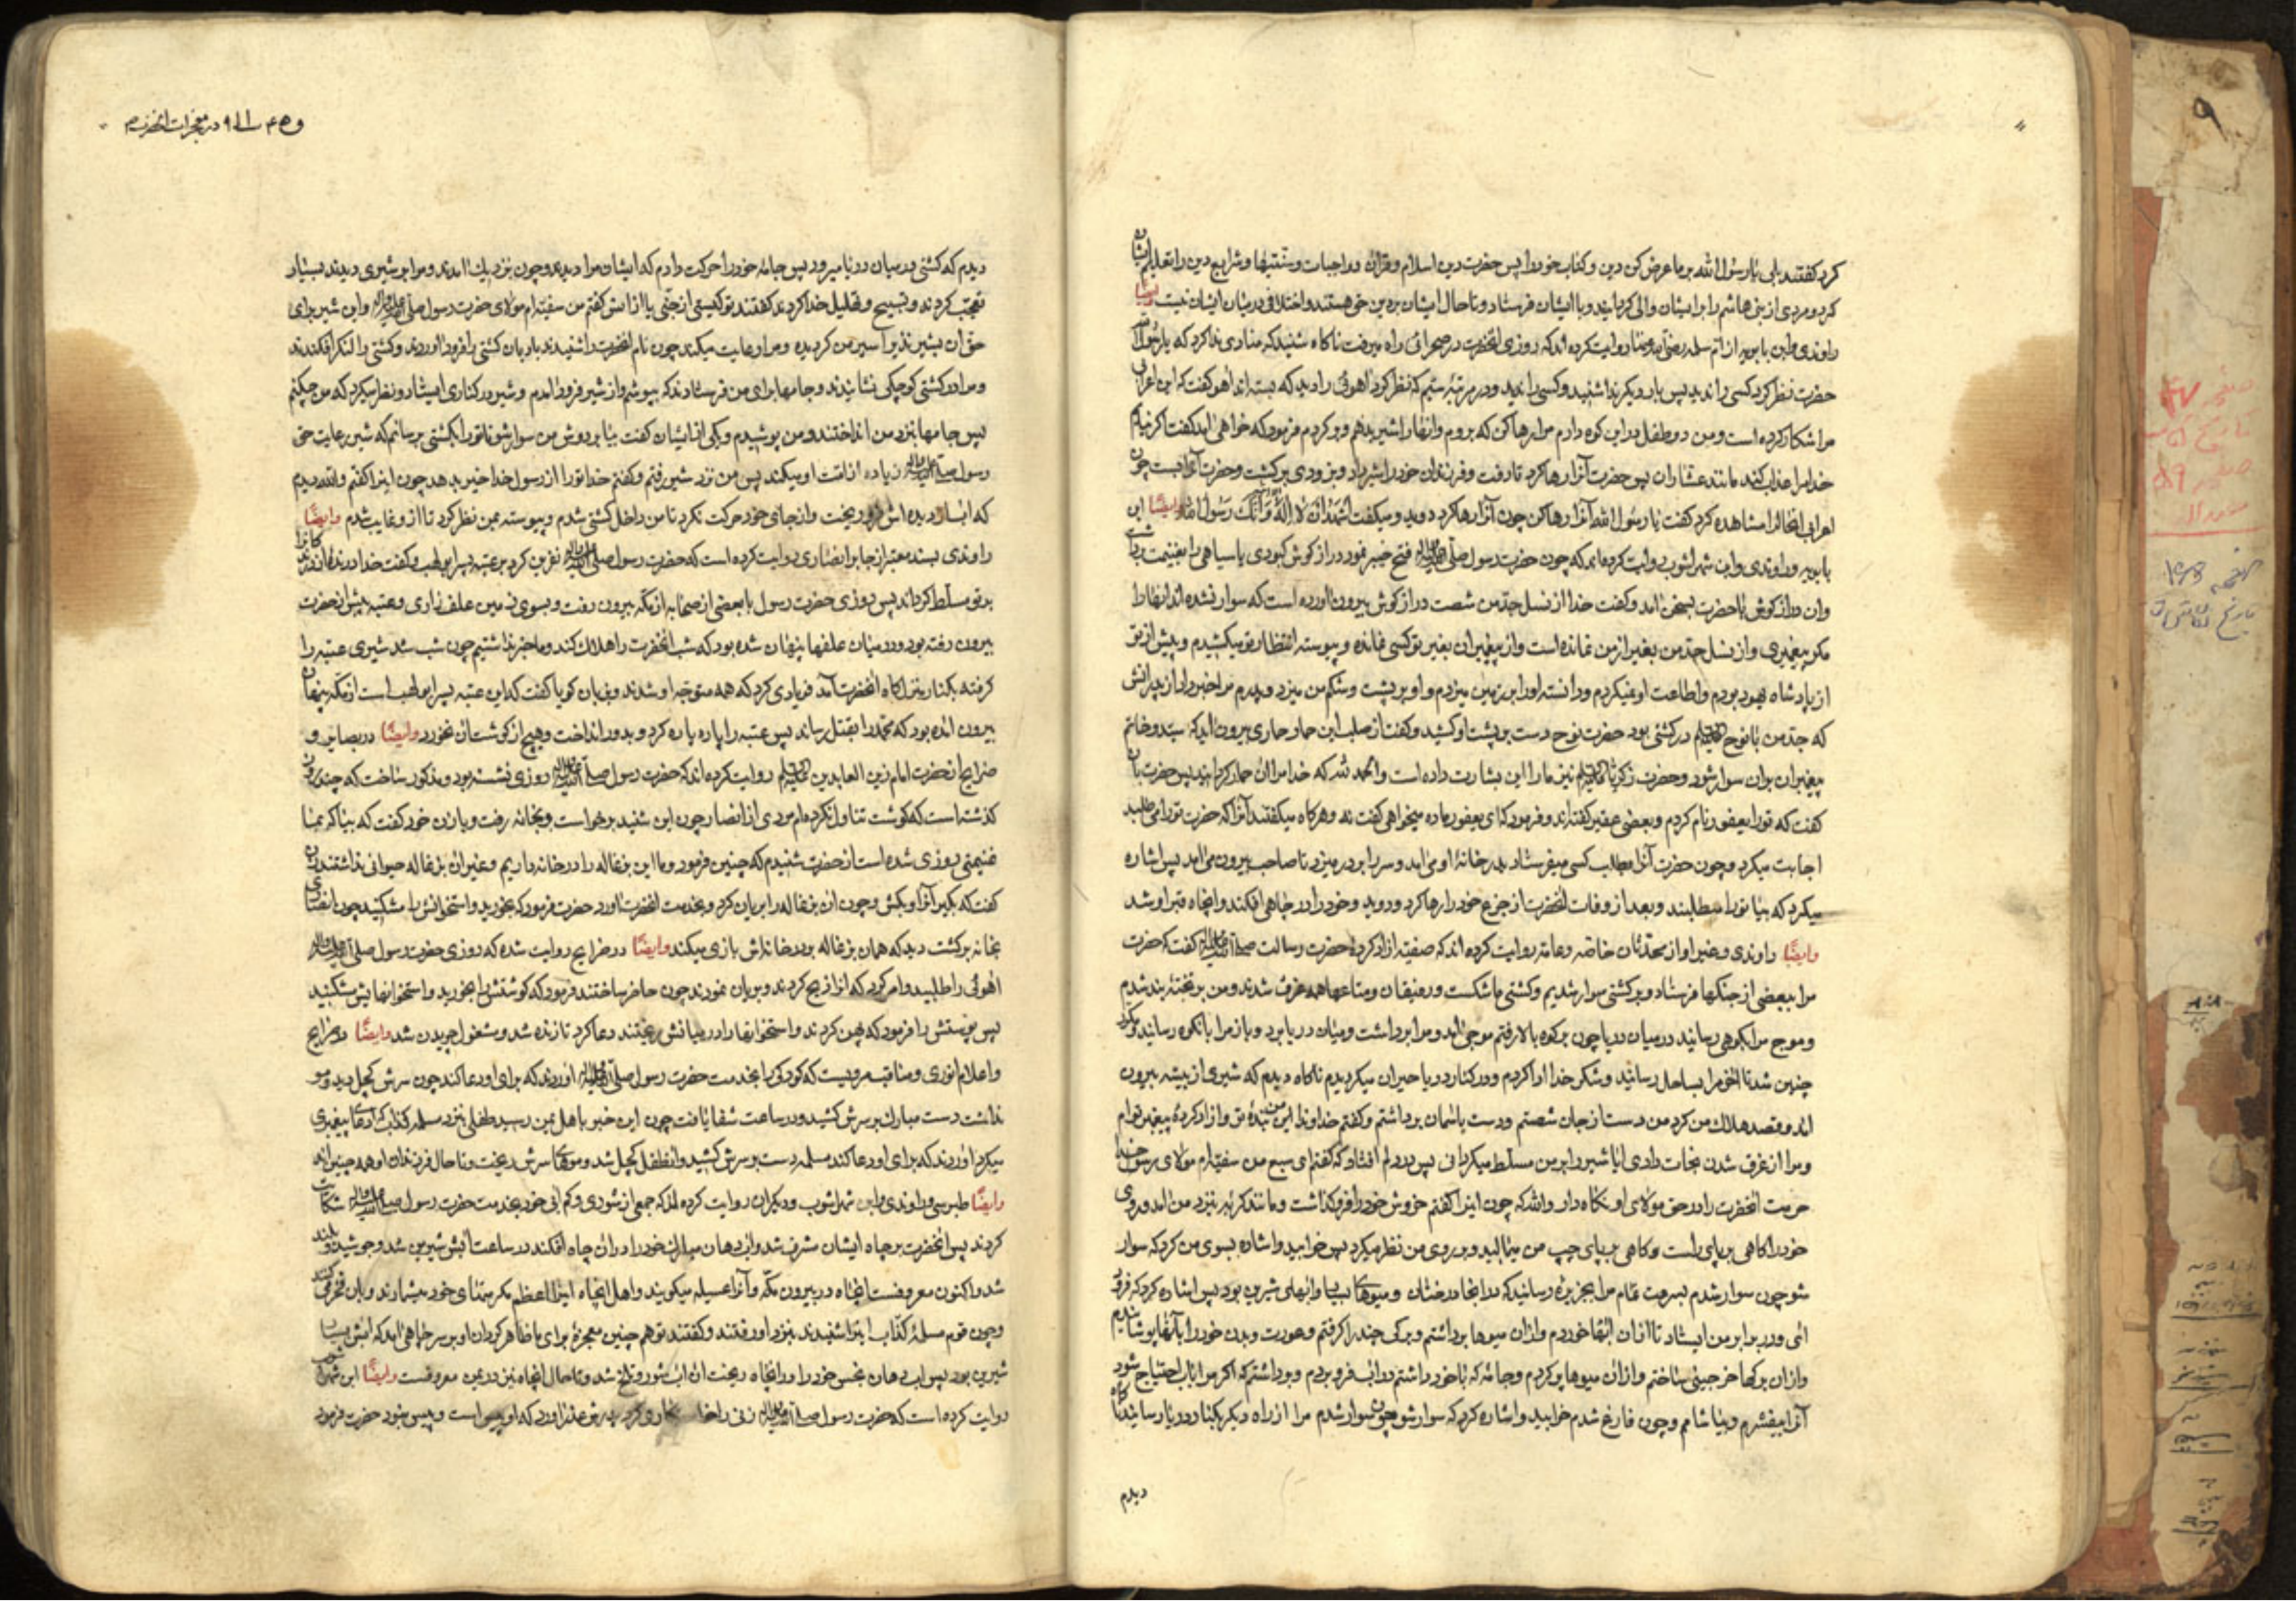 کرد گفتند بلی یا رسول الله بر ما عرض کن دین و کتاب خود را پس حضرت دین اسلام و قران و واجبات و سنتیها و شرایع دین را تعلیم ایشان
کرد و مردی از بنی هاشم را بر ایشان والی گردانید و با ایشان فرستاد و تا حال ایشان بر دین حق هستند و اختلافی در میان ایشان نیست وایضًا
راوندی و ابن بابویه از ام سلمه روایت کرده اند که روزی انحضرت در صحرائی راه میرفت ناکاه شنید که منادی ندا کرد که یا رسول الله
حضرت نظر کرد کسی را ندید پس بار دیگر ندا شنید و کسی را ندید و در مرتبهٔ سیم که نظر کرد اهوئی را دید که بسته اند اهو گفت که این اعرابی
مرا شکار کرده است و من دو طفل در این کوه دارم مرا رها کن که بروم و انها را شیر بدهم و برکردم فرمود که خواهی امد گفت اگر نیایم
خدا مرا عذاب کند مانند عشاران پس حضرت آنرا رها کرد تا رفت و فرزندان خود را شیر داد و بزودی برکشت و حضرت آنرا بست چون
اعرابی انحال را مشاهده کرد گفت یا رسول الله آنرا رها کن چون آنرا رها کرد دوید و میکفت اشهد ان لا اله الا الله وانک رسول الله وایضًا ابن
بابویه و راوندی و ابن شهراشوب روایت کرده اند که چون حضرت رسول صلی الله علیه واله فتح خیبر نمود دراز کوش کبودی یا سیاهی را بغنیمت برداشت
وان دراز کوش با حضرت بسخن امد و گفت خدا از نسل جد من شصت دراز کوش بیرون اورده است که سوار نشده اند انها را
مکر پیغمبری و از نسل جد من بغیر از من نمانده است و از پیغمبران بغیر تو کسی نمانده و پیوسته انتظار تو میکشیدم و پیش از تو
از پادشاه یهود بودم و اطاعت او نمیکردم و دانسته او را بر زمین میزدم و او بر پشت و شکم من میزد و پدرم مرا خبر داد از پدرانش
که جد من با نوح علیه السلام در کشتی بود حضرت نوح دست بر پشت او کشید و گفت از صلب این حمار حماری بیرون اید که سید و خاتم
پیغمبران بر ان سوار شود و حضرت زکریا علیه السلام نیز ما را این بشارت داده است و الحمد لله که خدا مرا ان حمار کردانید پس حضرت با ان
گفت که تو را یعفور نام کردم و بعضی عفیر گفته اند و فرمود که ای یعفور ماده میخواهی گفت نه و هرکاه میکفتند آنرا که حضرت تو را می طلبد
اجابت میکرد و چون حضرت آنرا بطلب کسی میفرستاد بدر خانهٔ او می امد و سر را بر در میزد تا صاحب بیرون می امد پس اشاره
میکرد که بیا تو را میطلبند و بعد از وفات انحضرت از جزع خود را رها کرد و دوید و خود را در چاهی افکند و انچاه قبر او شد
وایضًا راوندی و غیر او از محدثان خاصه و عامه روایت کرده اند که سفینه ازاد کردهٔ حضرت رسالت صلی الله علیه واله گفت که حضرت
مرا ببعضی از جنگها فرستاد و بر کشتی سوار شدیم و کشتی ما شکست و رفیقان و متاعها همه غرق شدند و من بر تخته بند شدم
و موج مرا بکوهی رسانید در میان دریا چون بر کوه بالا رفتم موجی امد و مرا برداشت و میان دریا برد و باز مرا بانکوه رسانید و مکرر
چنین شد تا اخر مرا بساحل رسانید و شکر خدا ادا کردم و در کنار دریا حیران میکردیدم ناکاه دیدم که شیری از بیشه بیرون
امد و قصد هلاک من کرد من دست از جان شستم و دست باسمان برداشتم و گفتم خداوندا این منم بندهٔ تو و ازاد کردهٔ پیغمبر توام
و مرا از غرق شدن نجات دادی ایا شیر را بر من مسلط میکردانی پس در دلم افتاد که گفتم ای سبع من سفینه ام مولای رسول خدا
حرمت انحضرت را در حق مولای او نکاه دار والله که چون اینرا گفتم خروش خود را فرو کذاشت و مانند کربه بنزد من امد و روی
خود را کاهی بر پای راست و کاهی بر پای چپ من میمالید و بر روی من نظر میکرد پس خوابید و اشاره بسوی من کرد که سوار
شو چون سوار شدم بسرعت تمام مرا بجزیره رسانید که در انجا درختان و میوهای بسیار و ابهای شیرین بود پس اشاره کرد که فرود
ائی و در برابر من ایستاد تا از ان ابها خوردم و از ان میوها برداشتم و برکی چند را کرفتم و عورت و بدن خود را با آنها پوشانیدم
و از ان برکها خرجینی ساختم و از ان میوها پر کردم و جامهٔ که با خود داشتم در اب فرو بردم و برداشتم که اگر مرا باب احتیاج شود
آنرا بیفشرم و بیاشامم و چون فارغ شدم خوابید و اشاره کرد که سوار شو چون سوار شدم مرا از راه دیکر بکنار دریا رسانید ناکاه
دیدم
در معجزات انحضرت
دیدم که کشتی در میان دریا میرود پس جامه خود را حرکت دادم که ایشان مرا دیدند و چون نزدیک امدند و مرا بر شیری دیدند بسیار
تعجب کردند و تسبیح و تهلیل خدا کردند گفتند تو کیستی از جنی یا از انس گفتم من سفینه ام مولای حضرت رسول صلی الله علیه واله و این شیر برای
حق ان بشیر نذیر اسیر من کردیده و مرا رعایت میکند چون نام انحضرت را شنیدند بادبان کشتی را فرود اوردند و کشتی را لنکر افکندند
و مرد در کشتی کوچکی نشانیدند و جامها برای من فرستادند که بپوشم و از شیر فرود امدم و شیر در کناری ایستاد و نظر میکرد که من چکنم
پس جامها بنزد من انداختند و من پوشیدم و یکی از ایشان گفت بیا بر دوش من سوار شو تا تو را بکشتی برسانم که شیر رعایت حق
رسول صلی الله علیه واله زیاده از امت او میکند پس من نزد شیر رفتم و گفتم خدا تو را از رسول خدا خیر بدهد چون اینرا گفتم والله دیدم
که اب از دیده اش فرو ریخت و از جای خود حرکت نکرد تا من داخل کشتی شدم و پیوسته بمن نظر کرد تا از او غایب شدم وایضًا
راوندی بسند معتبر از جابر انصاری روایت کرده است که حضرت رسول صلی الله علیه واله نفرین کرد بر عتبه پسر ابو لهب و گفت خدا درنده از درندکان را
بر تو مسلط کرداند پس روزی حضرت رسول با بعضی از صحابه از مکه بیرون رفت و بسوی زمین علف زاری و عتبه پیش از حضرت
بیرون رفته بود و در میان علفها پنهان شده بود که شب انحضرت را هلاک کند و ما خبر نداشتیم چون شب شد شیری عتبه را
کرفته بکنار منزلکاه انحضرت آمد فریادی کرد که همه متوجه او شدند و بزبان کویا گفت که این عتبه پسر ابو لهب است از مکه پنهان
بیرون امده بود که محمد را بقتل رساند پس عتبه را پاره پاره کرد و بدور انداخت و هیچ از کوشت ان نخورد وایضًا در بصایر و
خرایج از حضرت امام زین العابدین علیه السلام روایت کرده اند که حضرت رسول صلی الله علیه واله روزی نشسته بود و مذکور ساخت که چند روز
کذشته است که کوشت تناول نکرده ام مردی از انصار چون این شنید برخواست و بخانه رفت و با زن خود گفت که بیا که بما
غنیمتی روزی شده است از حضرت شنیدم که چنین فرمود و ما این بزغاله را در خانه داریم و غیر ان بزغاله حیوانی نداشتند زن
گفت که بکیر آنرا و بکش و چون ان بزغاله را بریان کرد و بخدمت انحضرت اورد حضرت فرمود که بخورید و استخوانش را مشکنید چون انصاری
بخانه برکشت دید که همان بزغاله در خانه اش بازی میکند وایضًا در خرایج روایت شده که روزی حضرت رسول صلی الله علیه واله
اهوئی را طلبید و امر کرد که انرا ذبح کردند و بریان نمودند چون حاضر ساختند فرمود که کوشتش را بخورید و استخوانهایش مشکنید
پس پوستش را فرمود که پهن کردند و استخوانها را در میانش ریختند دعا کرد تا زنده شد و مشغول چریدن شد وایضًا در خرایج
و اعلام الوری و مناقب مرویست که کودکی را بخدمت حضرت رسول صلی الله علیه واله اوردند که برای او دعا کند چون سرش کچل دید و مو
نداشت دست مبارک بر سرش کشید و در ساعت شفا یافت چون این خبر باهل یمن رسید طفلی بنزد مسلمه کذاب که ادعای پیغمبری
میکرد اوردند که برای او دعا کند مسلمه دست بر سرش کشید و انطفل کچل شد و موهای سرش ریخت و تا حال فرزندان او همه چنین اند
وایضًا طبرسی و راوندی و ابن شهراشوب و دیکران روایت کرده اند که جمعی از شوری و کم ابی خود بخدمت حضرت رسول صلی الله علیه واله شکایت
کردند پس انحضرت بر چاه ایشان مشرف شد و اب دهان مبارک خود را در ان چاه افکند در ساعت آبش شیرین شد و جوشید و بلند
شد و اکنون معروفست انچاه در بیرون مکه و آنرا عسیله میکویند و اهل انچاه اینرا اعظم مکرمتهای خود میشمارند و بان فخر میکنند
و چون قوم مسلمهٔ کذاب اینرا شنیدند بنزد او رفتند و گفتند تو هم چنین معجزهٔ برای ما ظاهر کردان او بر سر چاهی امد که ابش بسیار
شیرین بود پس اب دهان نجس خود را در انچاه ریخت ان اب شور و تلخ شد و تا حال انچاه نیز در یمن معروفست وایضًا ابن شهراشوب
روایت کرده است که حضرت رسول صلی الله علیه واله زنی را خواستکاری کرد پدرش عذر اورد که او پیس است و پیس نبود حضرت فرمود